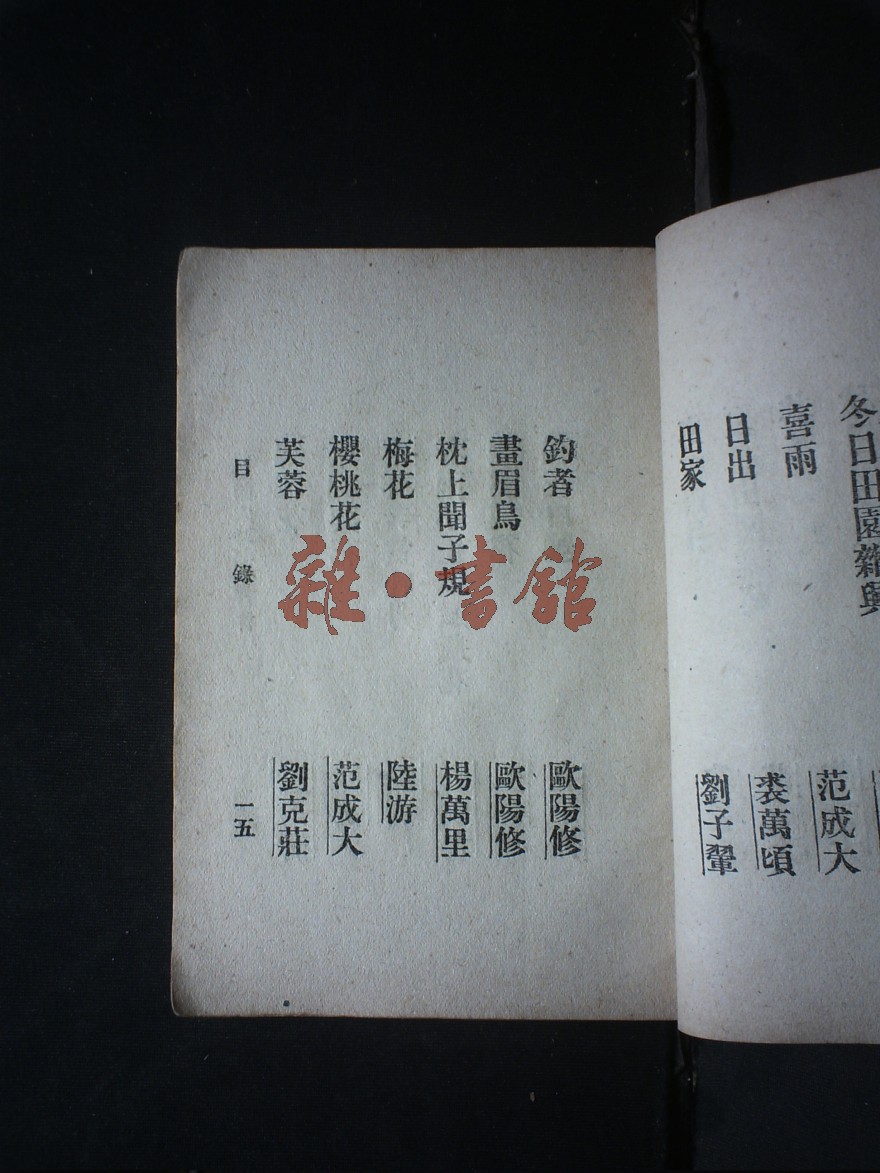 冬日田園雜興 范成大
喜雨 裘萬頃
日出
田家 劉子翬
釣者 歐陽修
畫眉鳥 歐陽修
枕上聞子規 楊萬里
梅花 陸游
櫻桃花 范成大
芙蓉 劉克莊
目錄 一五
雜·書館